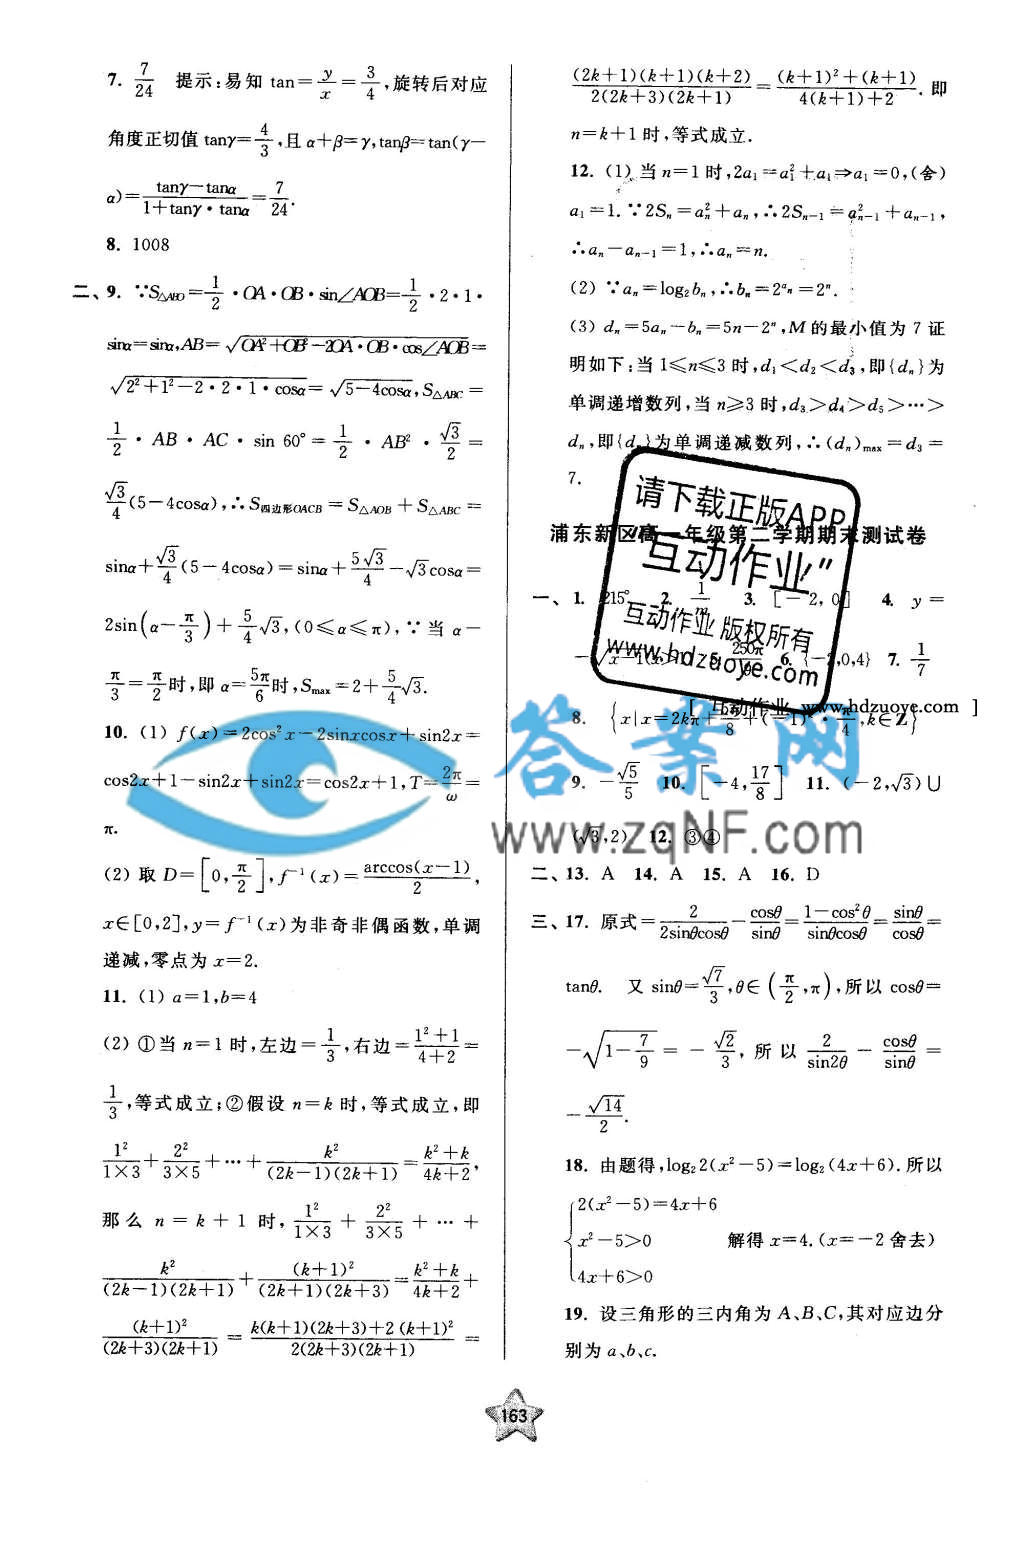 7. 7/24 提示:易知 tan=y/x=3/4,旋转后对应
角度正切值 tanγ=4/3,且 α+β=γ,tanβ=tan(γ−
α)=(tanγ−tanα)/(1+tanγ·tanα)=7/24.
8. 1008
二、9. ∵S△ABO=1/2·OA·OB·sin∠AOB=1/2·2·1·
sinα=sinα,AB=√(OA²+OB²−2OA·OB·cos∠AOB)=
√(2²+1²−2·2·1·cosα)=√(5−4cosα),S△ABC=
1/2·AB·AC·sin 60°=1/2·AB²·√3/2=
√3/4(5−4cosα),∴S四边形OACB=S△AOB+S△ABC=
sinα+√3/4(5−4cosα)=sinα+5√3/4−√3cosα=
2sin(α−π/3)+5/4√3,(0≤α≤π),∵当 α−
π/3=π/2时,即 α=5π/6时,Smax=2+5/4√3.
10. (1) f(x)=2cos²x−2sinxcosx+sin2x=
cos2x+1−sin2x+sin2x=cos2x+1,T=2π/ω=
π.
(2) 取 D=[0,π/2],f⁻¹(x)=arccos(x−1)/2,
x∈[0,2],y=f⁻¹(x)为非奇非偶函数,单调
递减,零点为 x=2.
11. (1) a=1,b=4
(2) ①当 n=1 时,左边=1/3,右边=(1²+1)/(4+2)=
1/3,等式成立;②假设 n=k 时,等式成立,即
1²/(1×3)+2²/(3×5)+⋯+k²/((2k−1)(2k+1))=(k²+k)/(4k+2),
那么 n=k+1 时,1²/(1×3)+2²/(3×5)+⋯+
k²/((2k−1)(2k+1))+(k+1)²/((2k+1)(2k+3))=(k²+k)/(4k+2)+
(k+1)²/((2k+3)(2k+1))=(k(k+1)(2k+3)+2(k+1)²)/(2(2k+3)(2k+1))=
((2k+1)(k+1)(k+2))/(2(2k+3)(2k+1))=((k+1)²+(k+1))/(4(k+1)+2).即
n=k+1 时,等式成立.
12. (1) 当 n=1 时,2a₁=a₁²+a₁⇒a₁=0,(舍)
a₁=1.∵2Sₙ=aₙ²+aₙ,∴2Sₙ₋₁=aₙ₋₁²+aₙ₋₁,
∴aₙ−aₙ₋₁=1,∴aₙ=n.
(2) ∵aₙ=log₂bₙ,∴bₙ=2^aₙ=2ⁿ.
(3) dₙ=5aₙ−bₙ=5n−2ⁿ,M 的最小值为 7 证
明如下:当 1≤n≤3 时,d₁<d₂<d₃,即{dₙ}为
单调递增数列,当 n≥3 时,d₃>d₄>d₅>⋯>
dₙ,即{dₙ}为单调递减数列,∴(dₙ)max=d₃=
7.
请下载正版APP
浦东新区高一年级第二学期期末测试卷
"互动作业"
一、1. 215° 2. 1/ 3. [−2,0] 4. y=
互动作业 版权所有
www.hdzuoye.com
−√x−1 5. 250π/9 6. {−2,0,4} 7. 1/7
[ 互动作业 www.hdzuoye.com ]
8. {x|x=2kπ+π/8+(−1)ᵏ·π/4,k∈Z}
答案网
9. −√5/5 10. [−4,17/8] 11. (−2,√3)∪
www.zqNF.com
(√3,2) 12. ③④
二、13. A 14. A 15. A 16. D
三、17. 原式=2/(2sinθcosθ)−cosθ/sinθ=(1−cos²θ)/(sinθcosθ)=sinθ/cosθ=
tanθ. 又 sinθ=√7/3,θ∈(π/2,π),所以 cosθ=
−√(1−7/9)=−√2/3,所以 2/sin2θ−cosθ/sinθ=
−√14/2.
18. 由题得,log₂2(x²−5)=log₂(4x+6).所以
2(x²−5)=4x+6
x²−5>0 解得 x=4.(x=−2 舍去)
4x+6>0
19. 设三角形的三内角为 A、B、C,其对应边分
别为 a、b、c.
163